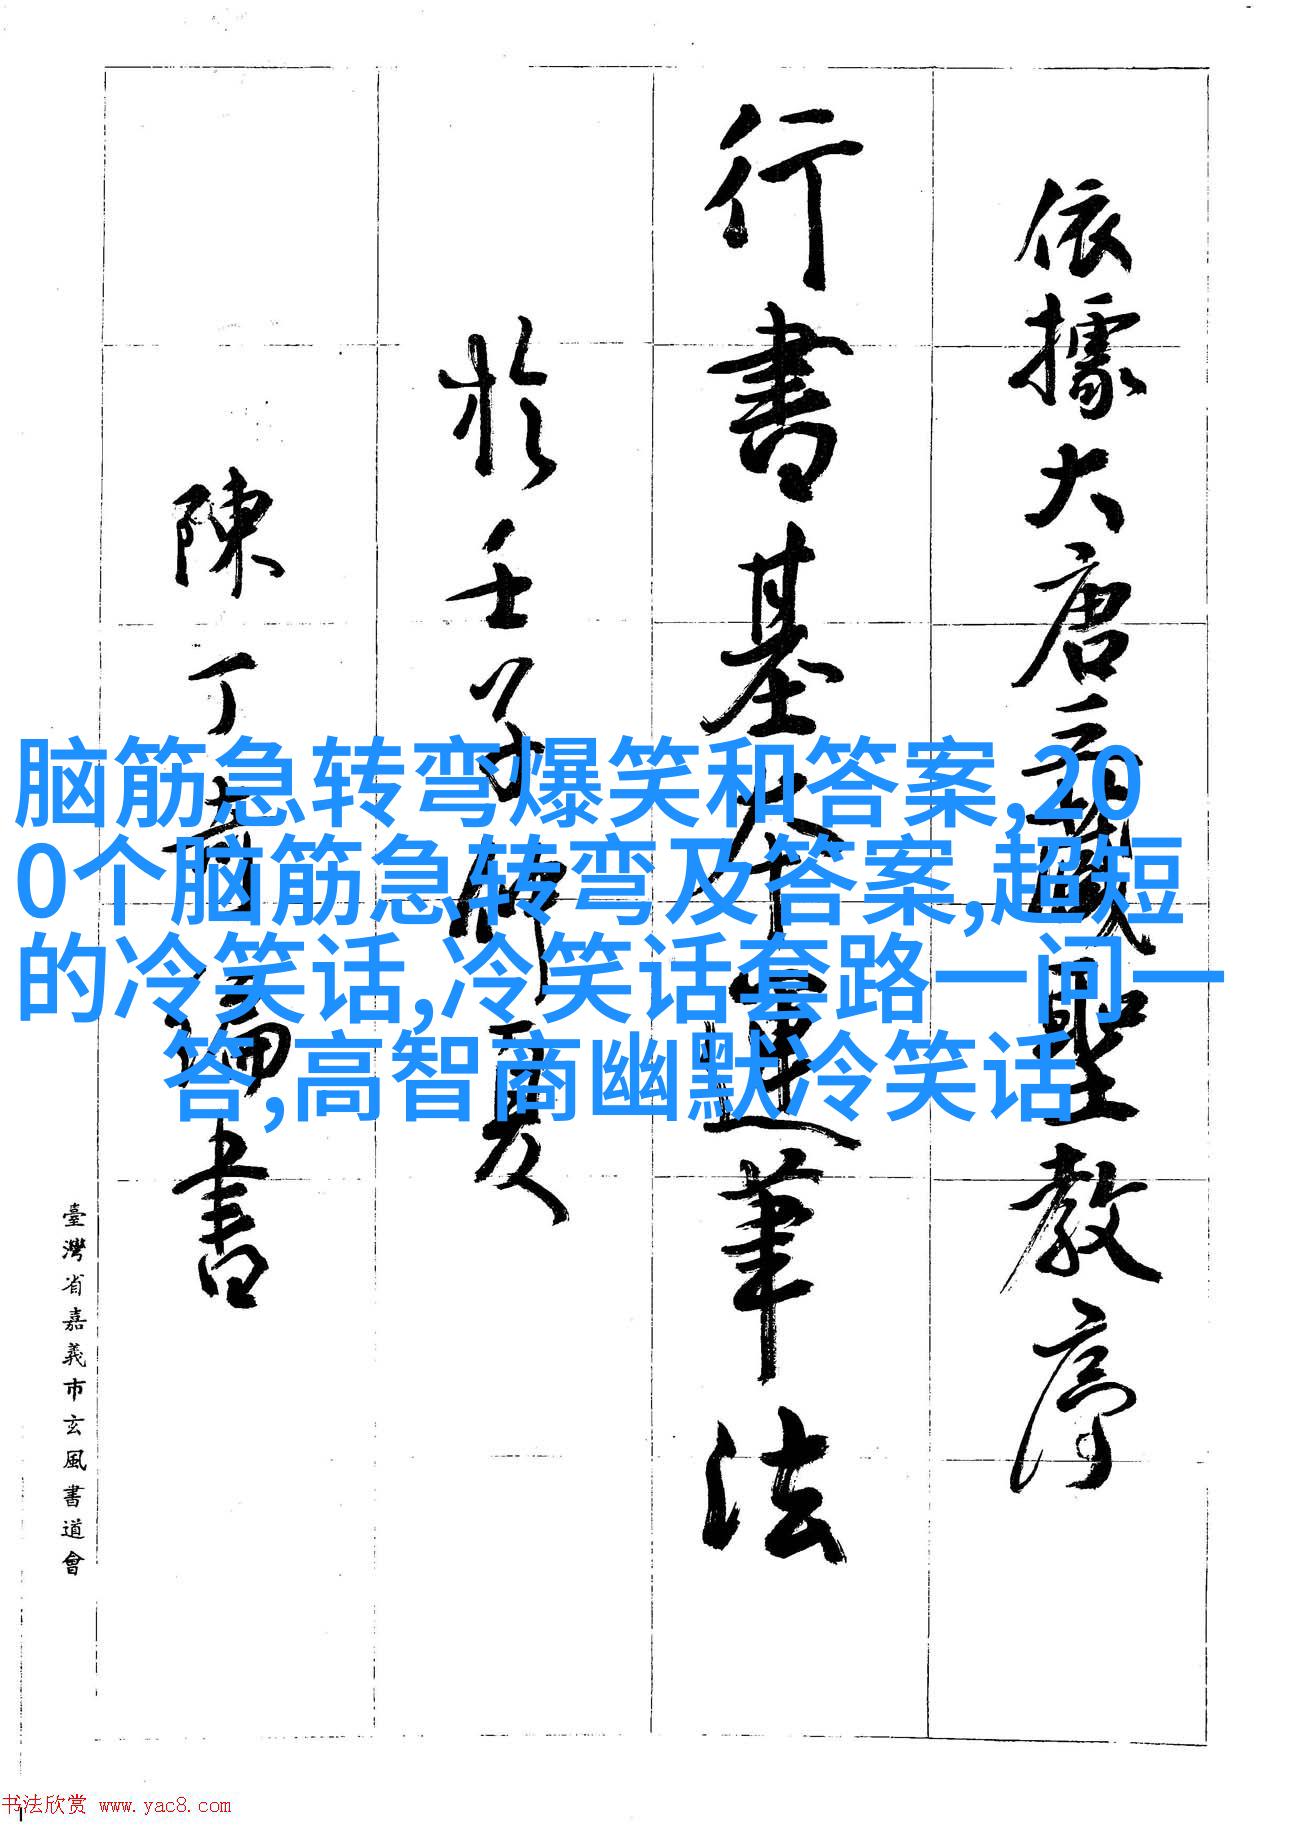 依據大唐三藏聖教序
行書基本運筆法
於壬子仲夏
陳丁奇編書
臺灣省嘉義市玄風書道會
脑筋急转弯爆笑和答案,20
0个脑筋急转弯及答案,超短
的冷笑话,冷笑话套路一问一
答,高智商幽默冷笑话
书法欣赏 www.yac8.com
1